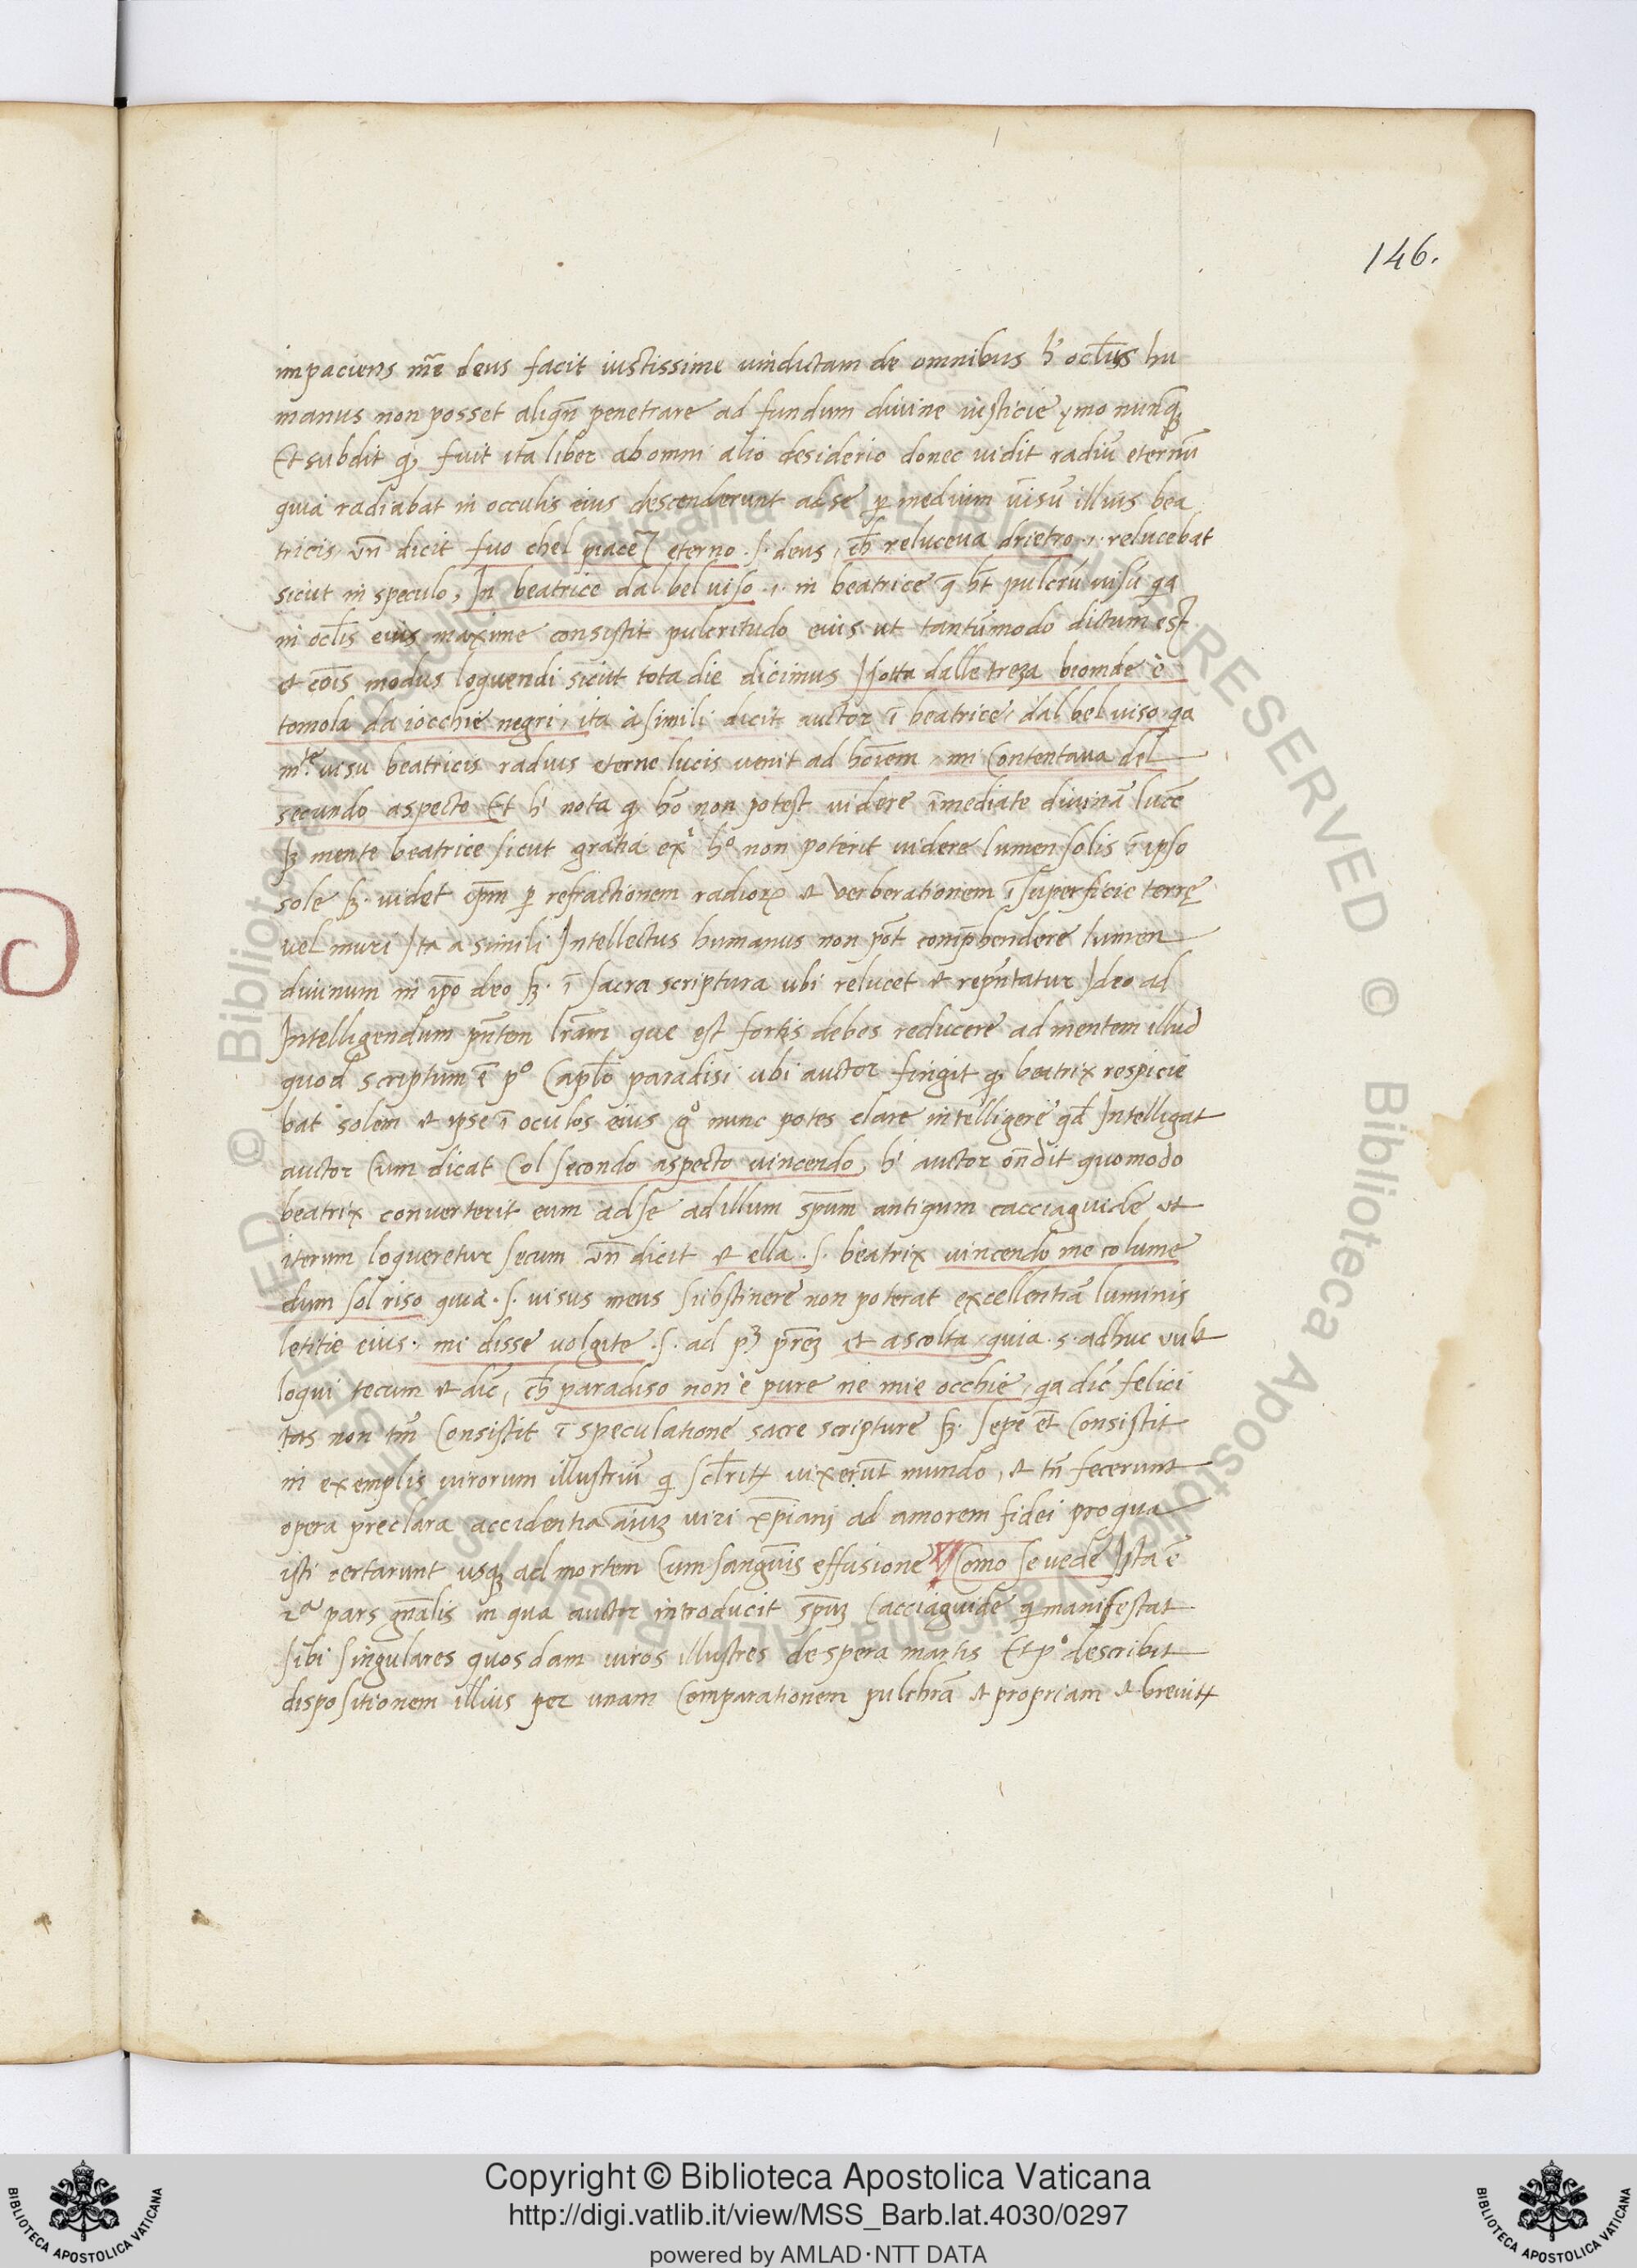 146.
impaciens mr̃e deus facit iustissime uindictam de omnibus hꝰ oclus hu
manus non posset aliqn̄ penetrare ad fundum diuine iusticie ymo nunqꝫ
Et subdit ꝙ fuit ita liber ab omni alio desiderio donec uidit radiũ eternũ
quia radiabat in occulis eius descenderunt ad se ꝑ medium uisũ illius bea
tricis un̄ dicit fuo chel piacer eterno .s. deus, ch̄ reluceua drietro .i. relucebat
sicut in speculo, In beatrice dal bel uiso .i. in beatrice q̄ ht̄ pulcrũ uisũ qa
in oclis eius maxime consistit pulcritudo eius ut tantũmodo dictum est
et cōis modus loquendi sicut tota die dicimus Isotta dalle treza bionde è
tomola da iocchie negri, ita à simili dicit auctor ī beatrice, dal bel uiso qa
mte uisu beatricis radius eterne lucis uenit ad hoīem mi contentaua del
secundo aspecto Et hꝰ nota ꝙ hō non potest uidere īmediate diuinã lucē
sꝫ mente beatrice sicut gratia exi ho non poterit uidere lumen solis ī ipso
sole sꝫ. uidet ip̄m ꝑ refractionem radioꝝ et verberationem ī superficie terrę
uel muri Ita a simili Intellectus humanus non pōt comp̄hendere lumen
diuinum in ip̄o deo sꝫ. ī sacra scriptura ubi relucet et rep̄ntatur Ideo ad
Intelligendum pn̄tem lr̄am que est fortis debes reducere ad mentem illud
quod scriptum ē po Caplo paradisi ubi auctor fingit ꝙ beatrix respicie
bat solem et ipse ī oculos eius go nunc potes clare intelligere qd Intelligat
auctor Cum dicat Col secondo aspecto uincendo, hꝰ auctor on̄dit quomodo
beatrix converterit eum ad se ad illum sp̄um antiqum cacciaguide ut
iterum loqueretur secum un̄ dicit et ella .s. beatrix uincendo me co lume
dum sol riso quia .s. uisus meus substinere non poterat excellentiã luminis
letitie eius. mi disse uolgite .s. ad pꝫ pr̄eꝫ et ascolta quia .s. adhuc vult
loqui tecum et dic̄, ch̄ paradiso non è pure ne mie occhie, qa dic̄ felici
tas non tm̄ Consistit ī speculatione sacre scripture sꝫ. sepe et̄ Consistit
in exemplis uirorum illustriũ qi uixerũt mundo, et tn̄ fecerunt
opera preclara accidentia uiri xp̄iani ad amorem fidei pro qua
isti certarunt usqꝫ ad mortem Cum sangn̄is effusione ¶ Como se uede Ista ē
2a pars gn̄alis in qua auctor introducit sp̄uꝫ Cacciaguide qi manifestat
sibi singulares quosdam uiros illustres de spera martis Et po describit
dispositionem illius per unam Comparationem pulchrã et propriam et breuitꝝ
Copyright © Biblioteca Apostolica Vaticana
http://digi.vatlib.it/view/MSS_Barb.lat.4030/0297
powered by AMLAD·NTT DATA
BIBLIOTECA APOSTOLICA VATICANA
BIBLIOTECA APOSTOLICA VATICANA